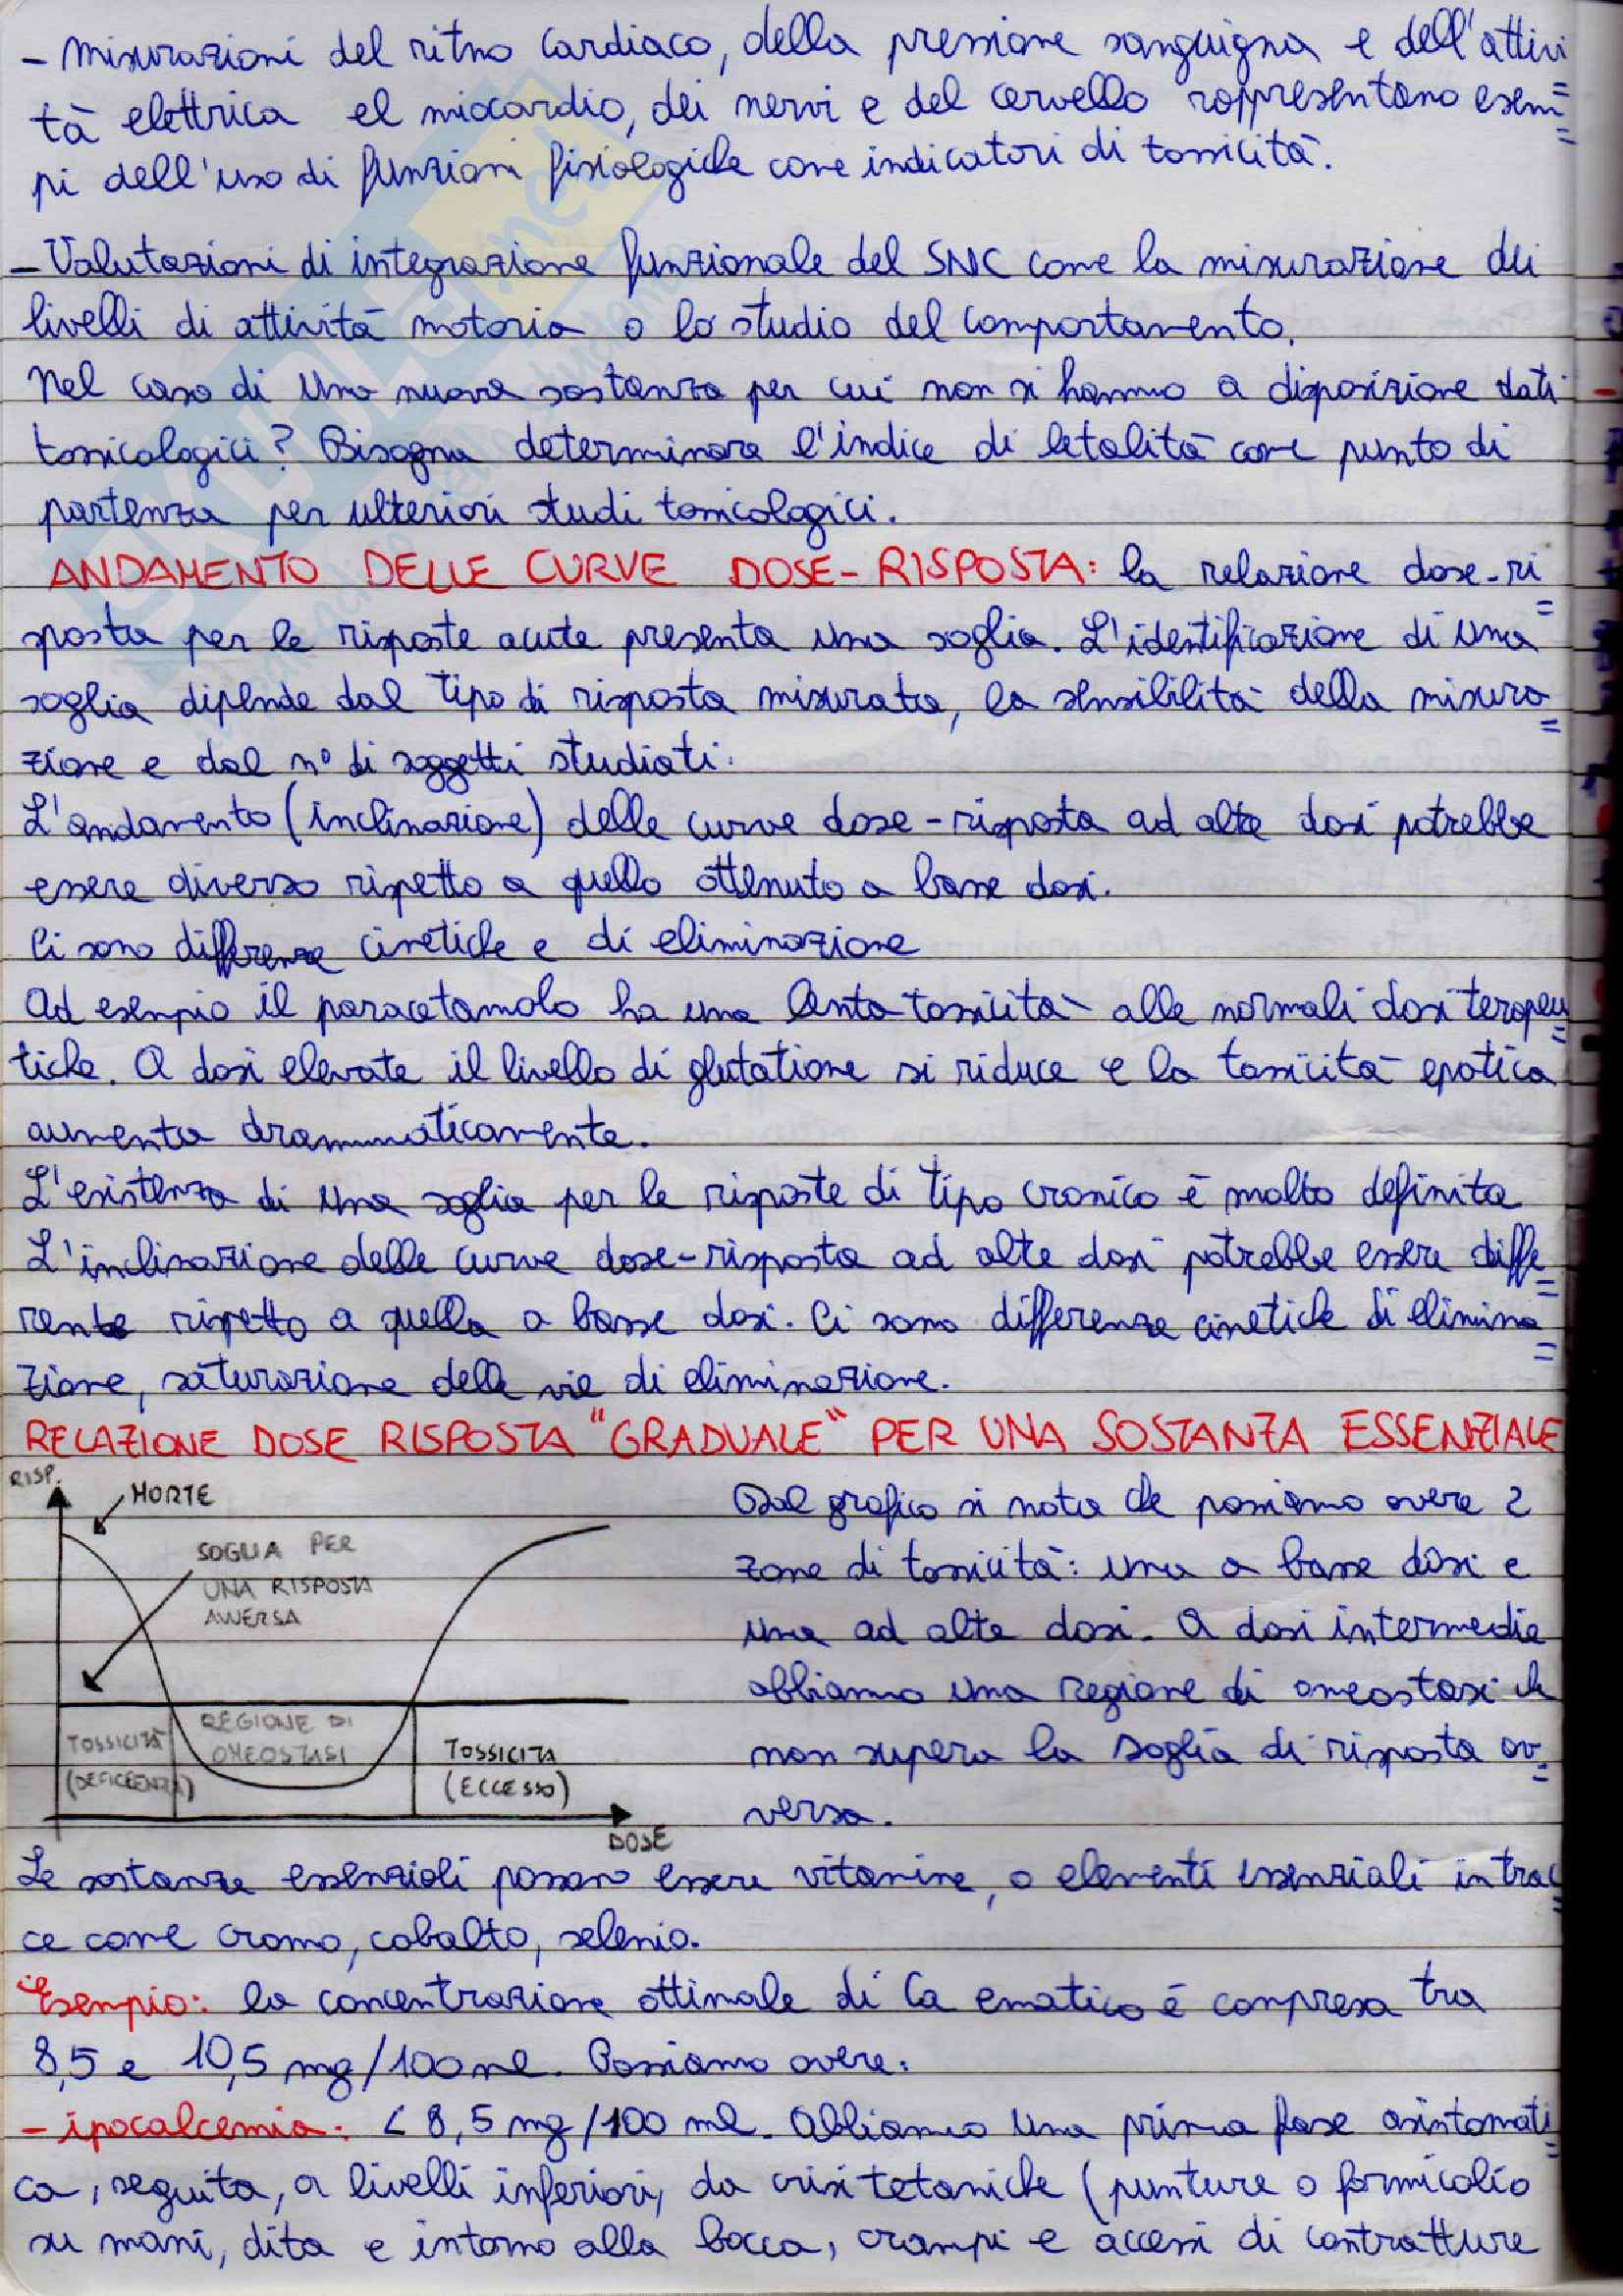 - Misurazioni del ritmo cardiaco, della pressione sanguigna e dell'attivi
tà elettrica el miocardio, dei nervi e del cervello rappresentano esem=
pi dell'uso di funzioni fisiologiche come indicatori di tossicità.
- Valutazioni di integrazione funzionale del SNC come la misurazione dei
livelli di attività motoria o lo studio del comportamento.
Nel caso di una nuova sostanza per cui non si hanno a disposizione dati
tossicologici? Bisogna determinare l'indice di letalità come punto di
partenza per ulteriori studi tossicologici.
ANDAMENTO DELLE CURVE DOSE-RISPOSTA: la relazione dose-ri=
sposta per le risposte acute presenta una soglia. L'identificazione di una
soglia dipende dal tipo di risposta misurata, la sensibilità della misura=
zione e dal n° di soggetti studiati.
L'andamento (inclinazione) delle curve dose-risposta ad alte dosi potrebbe
essere diverso rispetto a quello ottenuto a basse dosi.
Ci sono differenze cinetiche e di eliminazione
Ad esempio il paracetamolo ha una lenta tossicità alle normali dosi terapeu=
tiche. A dosi elevate il livello di glutatione si riduce e la tossicità epatica
aumenta drammaticamente.
L'esistenza di una soglia per le risposte di tipo cronico è molto definita
L'inclinazione delle curve dose-risposta ad alte dosi potrebbe essere diffe=
rente rispetto a quella a basse dosi. Ci sono differenze cinetiche di elimina=
zione, saturazione delle vie di eliminazione.
RELAZIONE DOSE RISPOSTA "GRADUALE" PER UNA SOSTANZA ESSENZIALE
RISP.
MORTE
SOGLIA PER
UNA RISPOSTA
AVVERSA
TOSSICITÀ
(DEFICIENZA)
REGIONE DI
OMEOSTASI
TOSSICITA
(ECCESSO)
DOSE
Dal grafico si nota che possiamo avere 2
zone di tossicità: una a basse dosi e
una ad alte dosi. A dosi intermedie
abbiamo una regione di omeostasi che
non supera la soglia di risposta av=
versa.
Le sostanze essenziali possono essere vitamine, o elementi essenziali in trac=
ce come cromo, cobalto, selenio.
Esempio: la concentrazione ottimale di Ca ematico è compresa tra
8,5 e 10,5 mg/100 ml. Possiamo avere:
- ipocalcemia: < 8,5 mg/100 ml. Abbiamo una prima fase asintomati=
ca, seguita, a livelli inferiori, da crisi tetaniche (punture o formicolio
su mani, dita e intorno alla bocca, crampi e accessi di contratture